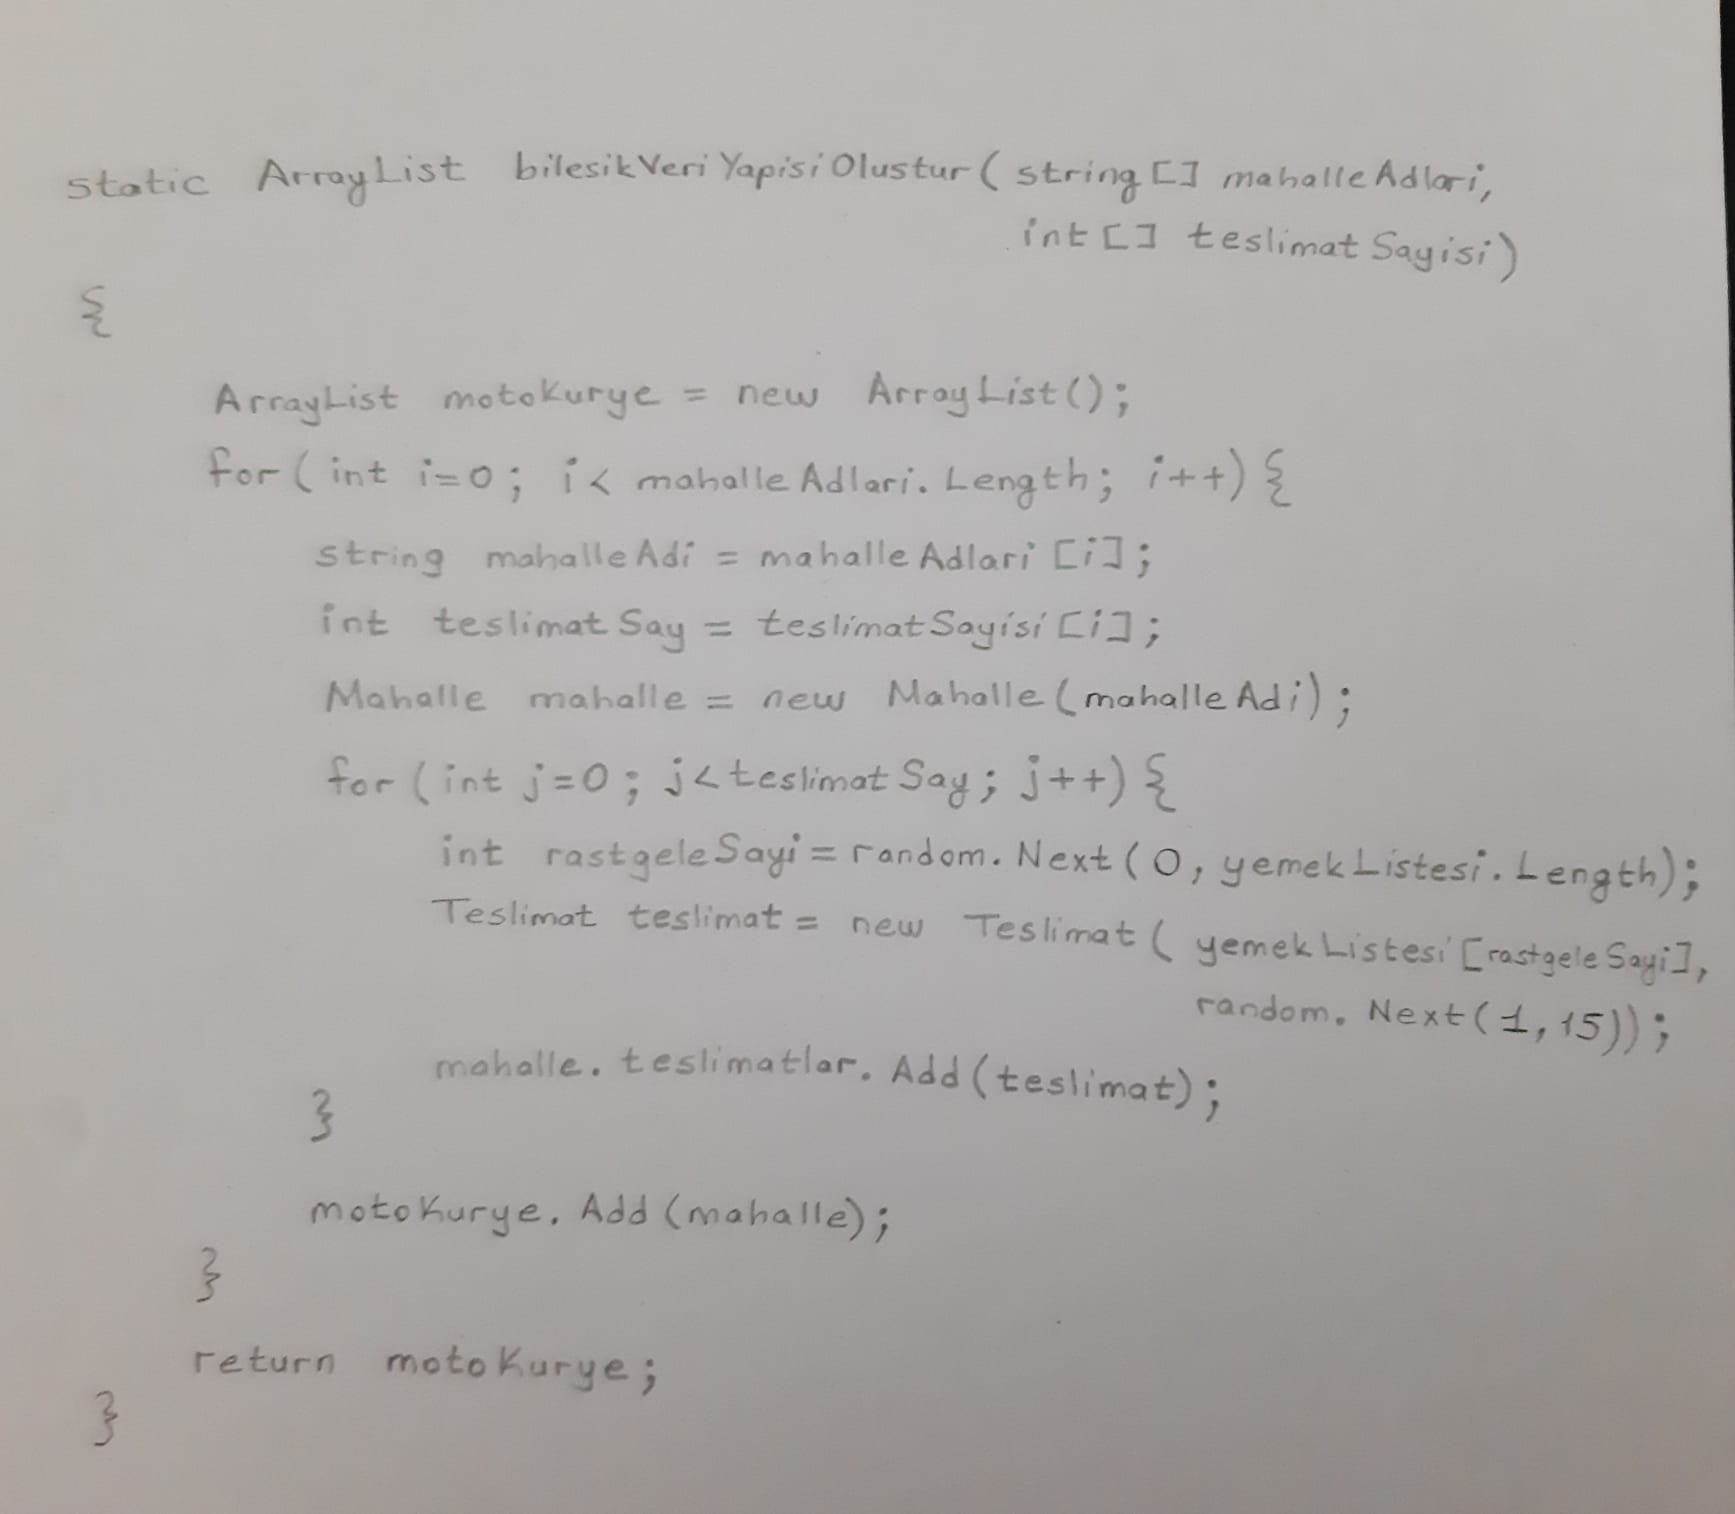 static ArrayList bilesikVeriYapisiOlustur(string[] mahalleAdlari,
int[] teslimatSayisi)
{
ArrayList motokurye = new ArrayList();
for(int i=0; i< mahalleAdlari.Length; i++){
string mahalleAdi = mahalleAdlari[i];
int teslimatSay = teslimatSayisi[i];
Mahalle mahalle = new Mahalle(mahalleAdi);
for(int j=0; j<teslimatSay; j++){
int rastgeleSayi = random.Next(0, yemekListesi.Length);
Teslimat teslimat = new Teslimat(yemekListesi[rastgeleSayi],
random.Next(1,15));
mahalle.teslimatlar.Add(teslimat);
}
motokurye.Add(mahalle);
}
return motokurye;
}